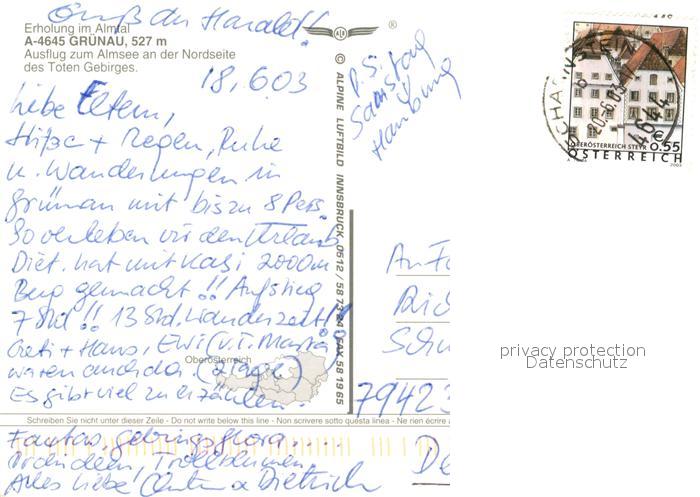 Gruß an Harald!
Erholung im Almtal
A-4645 GRÜNAU, 527 m
Ausflug zum Almsee an der Nordseite
des Toten Gebirges.
18.6.03
Liebe Eltern,
Hitze + Regen, Ruhe
u. Wanderungen in
Grünau mit bis zu 8 Pers.
So verleben wir den Urlaub
Diet. hat mit Kasi 2000m
Berg gemacht!! Aufstieg
7 Std!! 13 Std. Wanderzeit!!
Greti + Hans, Ewi (v. T. Marta)
waren auch da. (2 Tage)
Es gibt viel zu erzählen.
Oberösterreich
Schreiben Sie nicht unter dieser Zeile - Do not write below this line - Non scrivere sotto questa linea - Ne rien écrire
Fantas. gebirgsflora....
Trollblumen
Alles Liebe! & Dietrich
® 
© ALPINE LUFTBILD INNSBRUCK, 0512 / 58 73 24, FAX 58 19 85
P.S.
Samstag
Hamburg
OBERÖSTERREICH STEYR
€ 0.55
ÖSTERREICH
2003
20.6.03
4644
An Fa
Sch
79423
De
privacy protection
Datenschutz